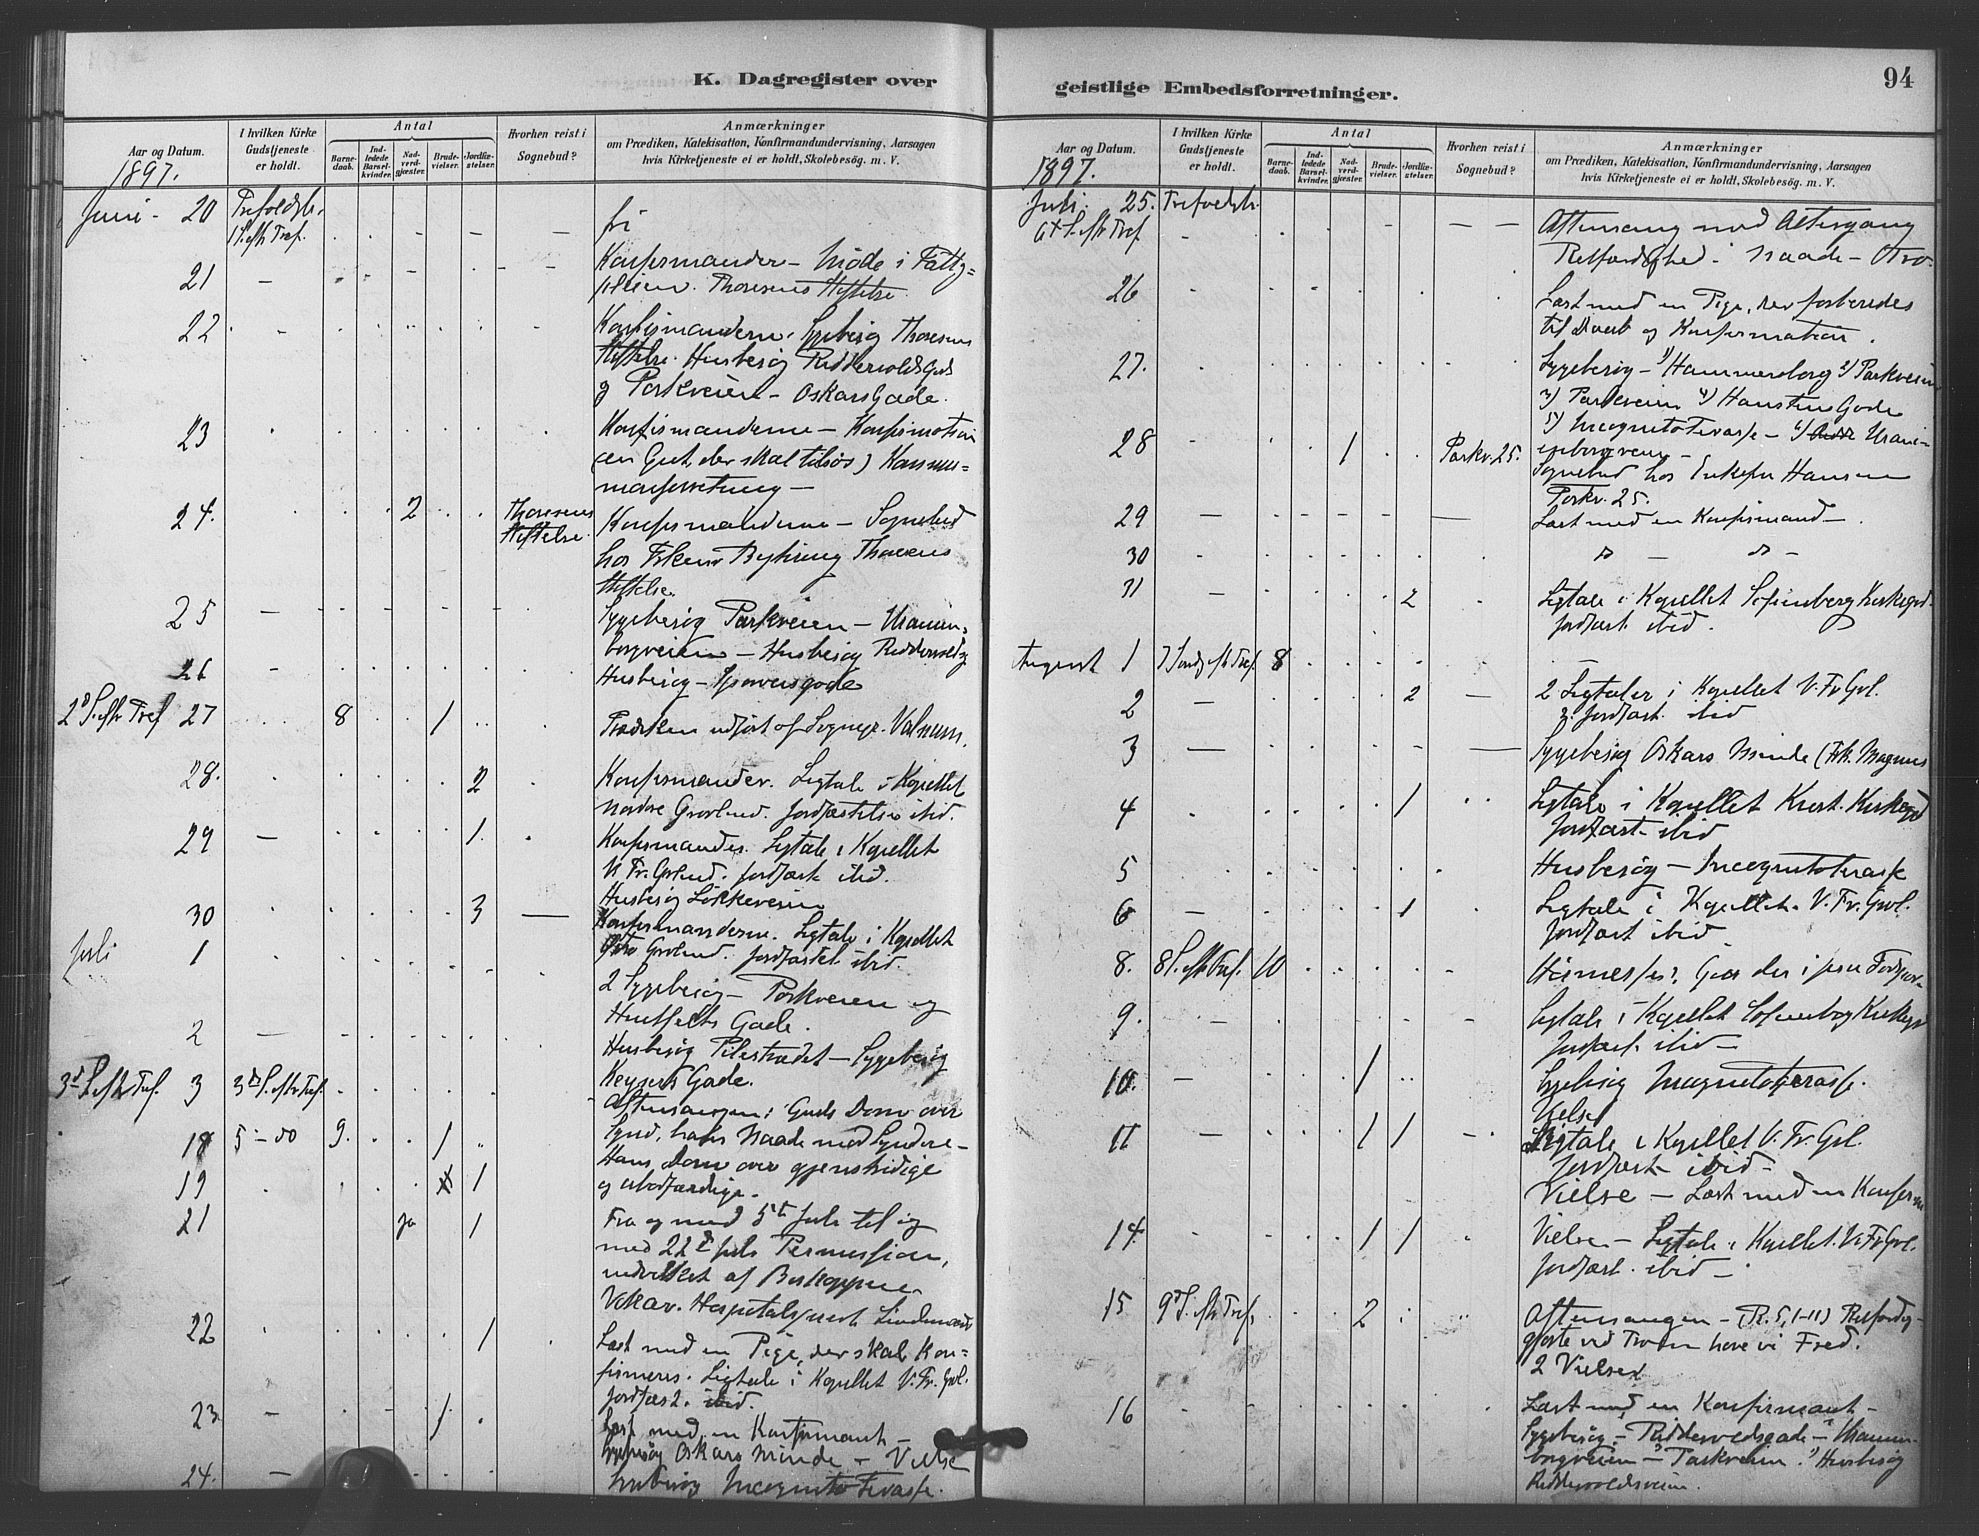 K. Dagregister over
geistlige Embedsforretninger.
94
Aar og Datum.
1897.
I hvilken Kirke
Gudstjeneste
er holdt.
Antal
Barne-
daab.
Ind-
ledede
Barsel-
kvinder.
Nad-
verd-
gjæster.
Brude-
vielser.
Jordfæ-
stelser.
Hvorhen reist i
Sognebud?
Anmærkninger
om Prædiken, Katekisation, Konfirmandundervisning, Aarsagen
hvis Kirketjeneste ei er holdt, Skolebesøg. m. V.
Juni - 20
1 S. eftr Tref.
fri
21
Konfirmander - Møde i
Thoresens Stiftelse.
22
Konfirmanderne. Sygebesøg Thoresens
Stiftelse. Husbesøg Riddervolds Gade
og Parkveien - Oskars Gade.
23
Konfirmanderne - Konfirmation
(en Gut, der skal tilsøs)
24. 2 Thoresens
Stiftelse.
Konfirmanderne - Sognebud
hos Thoresens
Stiftelse.
25
Sygebesøg Parkveien - Uranien-
borgveien - Husbesøg
26
Husbesøg -
2d S. eftr Tref 27 8 1
Prædiken udført af Sognepr.
28. 2
Konfirmander. Ligtale i Kapellet
Nordre Gravlund. Jordfæstelse ibid.
29 1.
Konfirmander. Ligtale i Kapellet
V. Fr. Grlund. Jordfæst. ibid.
Husbesøg Løkkeveien
30 3
Konfirmanderne. Ligtale i Kapellet
Gravlund. ibid.
Juli 1
2 Sygebesøg - Parkveien og
Huitfelts Gade.
2
Husbesøg Pilestrædet - Sygebesøg
Keysers Gade.
3d S. eftr Tref. 3 3d S. eftr Tref.
Aftensangen: Guds Dom over
Synd, hans Naade mod Syndere -
Hans Dom over gjenstridige
og
18 5 - do 9. 1
19 1
21 ja 1
Fra og med 5te Juli til og
med 22d Juli Permission,
af Biskoppen
Vikar. Hospitalsprest
22 1
Læst med en Pige, der skal kon-
firmeres. Ligtale i Kapellet V. Fr. Grl.
Jordfæst. ibid.
23. 1
Læst med en Konfirmant -
Sygebesøg Oskars Minde - Vielse
24.
Incognito Terasse.
Aar og Datum.
1897.
I hvilken Kirke
Gudstjeneste
er holdt.
Antal
Barne-
daab.
Ind-
ledede
Barsel-
kvinder.
Nad-
verd-
gjæster.
Brude-
vielser.
Jordfæ-
stelser.
Hvorhen reist i
Sognebud?
Anmærkninger
om Prædiken, Katekisation, Konfirmandundervisning, Aarsagen
hvis Kirketjeneste ei er holdt, Skolebesøg. m. V.
Juli. 25.
S. eftr Tref
Aftensang med Altergang
Retfærdighed - Naade - Tro.
26
Læst med en Pige, der forberedes
til Daab og Konfirmation.
27.
Sygebesøg - 1) Hammersborg 2) Parkveien
3) Parkveien 4) Hansteens Gade
5) Incognito Terasse - 6) Urani-
enborgveien -
28 1 Parkv. 25.
Sognebud hos Enkefru Hansen
Parkv. 25.
29
Læst med en Konfirmand -
30
do - do -
31 2
Ligtale i Kapellet Sofienberg Kirkegrd.
Jordfæst. ibid.
August 1 7 Sønd. eftr Tref. 8
2 2
2 Ligtaler i Kapellet V. Fr Grl.
2. Jordfæst. ibid
3
Sygebesøg Oskars Minde (Frk. Magnus
4 1
Ligtale i Kapellet Krist. Kirkegrd
Jordfæst. ibid
5
Husbesøg - Incognitoterasse
6 1
Ligtale i Kapellet. V. Fr. Grl.
Jordfæst ibid.
8. 8 S. eftr Tref. 10
9.
Ligtale i Kapellet Sofienberg Kirkegrd
Jordfæst. ibid -
10. 1
Sygebesøg Incognitoterasse.
Vielse
11 1 1
Ligtale i Kapellet V. Fr. Grl.
Jordfæst - ibid -
Vielse - Læst med en Konfirm
14 1 1
Vielse - Ligtale i Kapellet. V. Fr Grl.
Jordfæst. ibid -
15 9d S. eftr Tref. 2
Aftensangen - (R. 5, 1-11) Retfærdig-
gjorte ved Troen have vi Fred.
2 Vielser
16
Læst med en Konfirmant -
Sygebesøg - Riddervoldsgade - Uranien-
borgveien - Parkveien. Husbesøg
Riddervoldsveien.